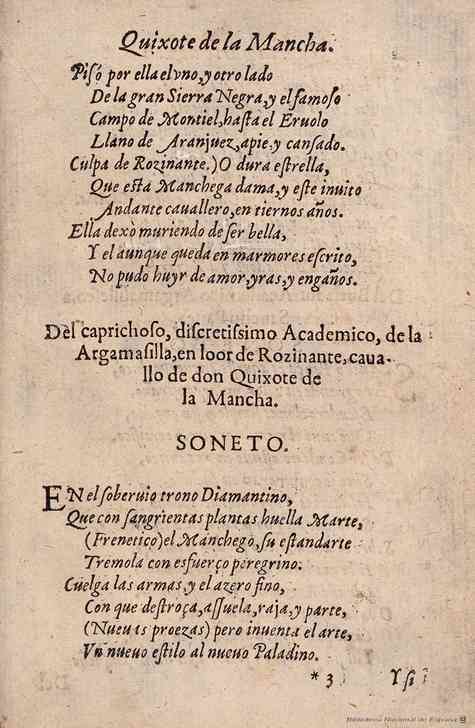 Quixote de la Mancha.
Pisó por ella el vno, y otro lado
De la gran Sierra Negra, y el famoso
Campo de Montiel, hasta el Eruolo
Llano de Aranjuez, apie, y cansado.
Culpa de Rozinante.) O dura estrella,
Que esta Manchega dama, y este inuito
Andante cauallero, en tiernos años.
Ella dexò muriendo de ser bella,
Y el aunque queda en marmores escrito,
No pudo huyr de amor, yras, y engaños.
Del caprichoso, discretissimo Academico, de la
Argamasilla, en loor de Rozinante, caua-
llo de don Quixote de
la Mancha.
SONETO.
EN el soberuio trono Diamantino,
Que con sangrientas plantas huella Marte,
(Frenetico) el Manchego, su estandarte
Tremola con esfuerço peregrino:
Cuelga las armas, y el azero fino,
Con que destroça, assuela, raja, y parte,
(Nueuas proezas) pero inuenta el arte,
Vn nueuo estilo al nueuo Paladino.
* 3 Y si
Biblioteca Nacional de España